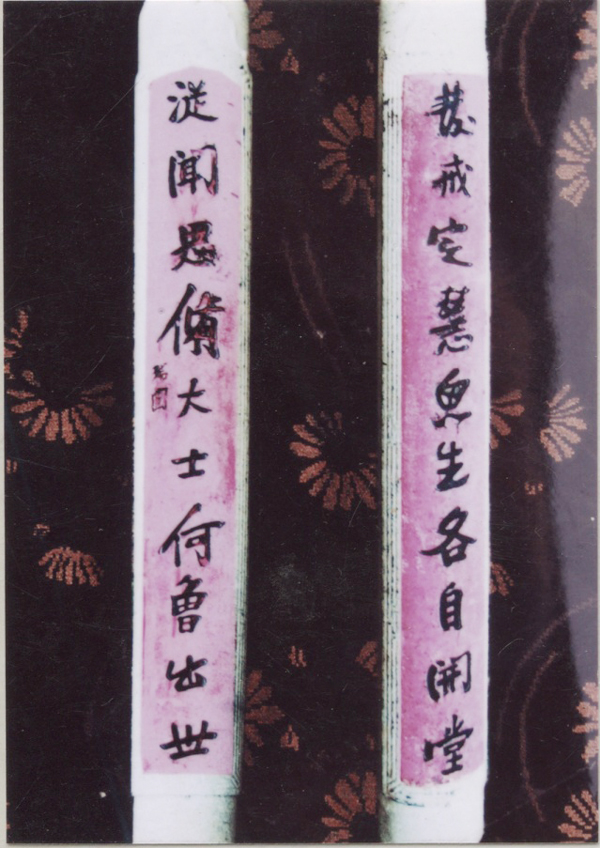 發戒定慧衆生各自開堂
從聞思脩大士何曾出世
瑞圖